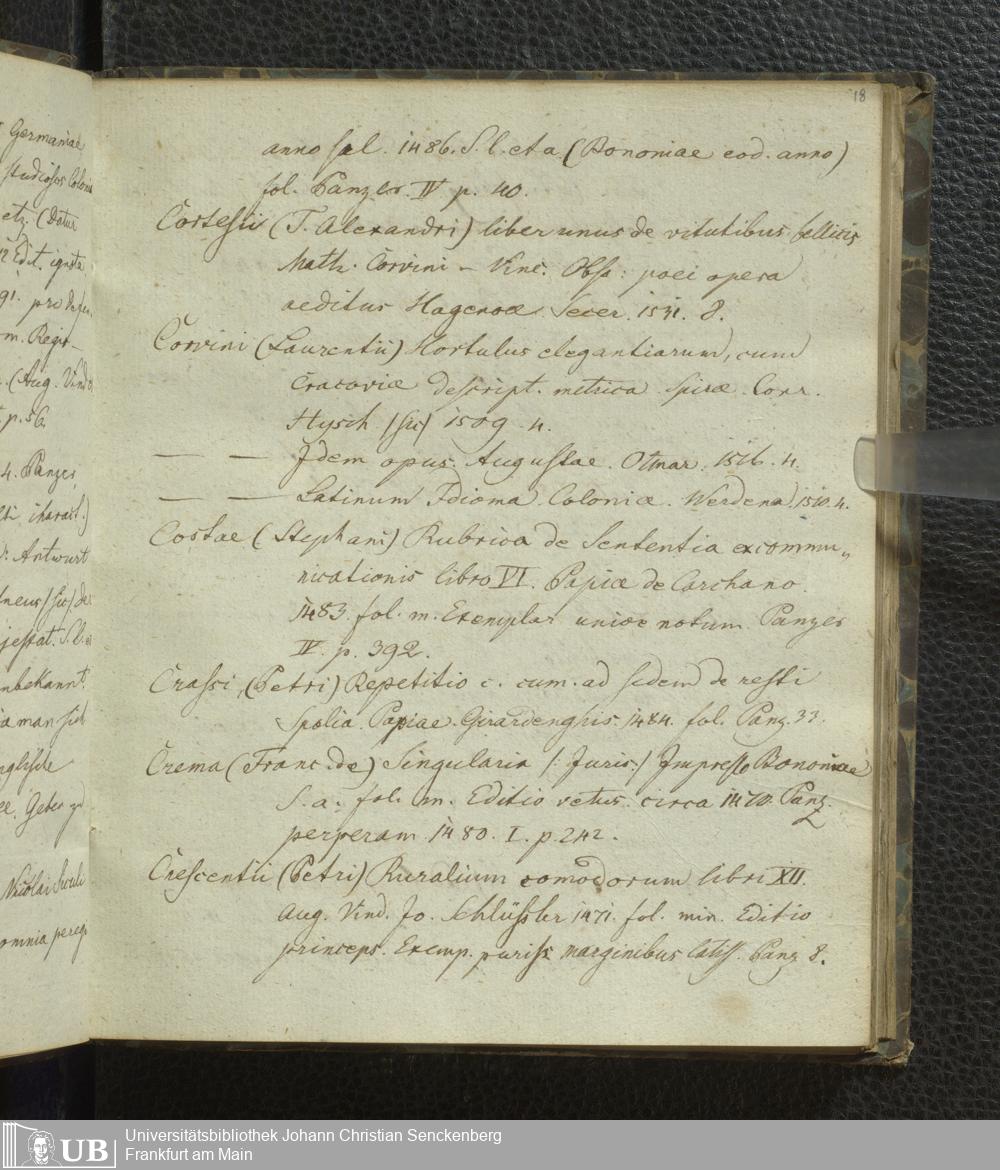 18
Germaniae
studiosos Coloni
etz. (Datur
Edit. ignota
91.
m. Regst-
(Aug. Vind
p. 56.
4. Panzer,
charact.)
Antwurt
neus /sic/ de
jestat. S. l. e
nbekannt.
a man sich
nglische
ee. Geber zu
Nicolai Siculi
omnia pereg
anno sal. 1486. S. l. et a. (Bononiae eod. anno)
fol. Panzer. IV p. 40.
Cortesii (T. Alexandri) liber unus de vitutibus bellicis
Math. Corvini – Vinc. Obso: poei opera
aeditus Hagenoæ Secer. 1531. 8.
Corvini (Laurentii) Hortulus elegantiarum, cum
Cracoviæ descript. metrica. Spiræ. Conr.
Hysch /sic/ 1509. 4.
— — Idem opus. Augustae. Otmar. 1516. 4.
— — Latinum Idioma. Coloniæ. Werdena. 1510. 4.
Costae (Stephani) Rubrica de Sententia excommu„
nicationis libro VI. Papiæ de Carchano.
1483. fol. m. Exemplar unice notum. Panzer
IV. p. 392.
Crassi (Petri) Repetitio c. cum. ad sedem de resti
spolia. Papiae. Girardenghis. 1484. fol. Panz. 33.
Crema (Franc. de) Singularia /: Juris :/ Impresso Bononiae
S. a. fol. m. Editio vetus. circa 1470. Panz.
perperam 1480. I. p. 242.
Crescentii (Petri) Ruralium comodorum libri XII.
Aug. Vind. Jo. Schüssler 1471. fol. min. Editio
princeps. Exemp. puriss. marginibus latiss. Panz 8.
UB Universitätsbibliothek Johann Christian Senckenberg
Frankfurt am Main